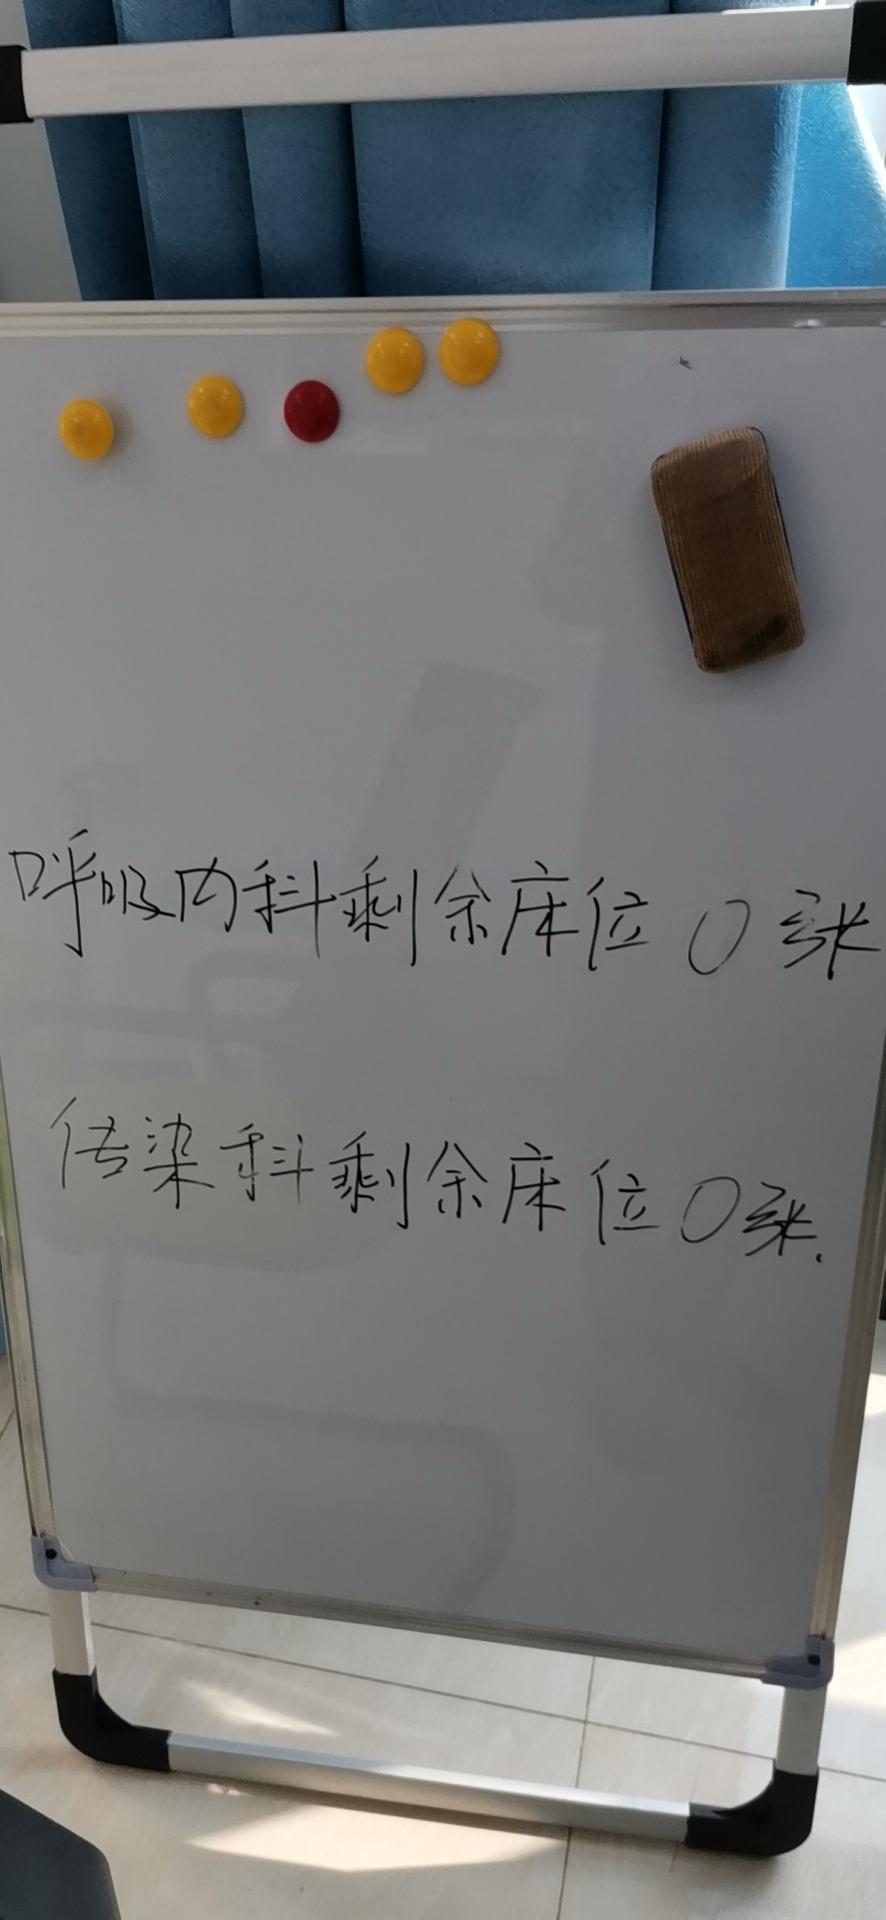 呼吸内科剩余床位0张
传染科剩余床位0张.